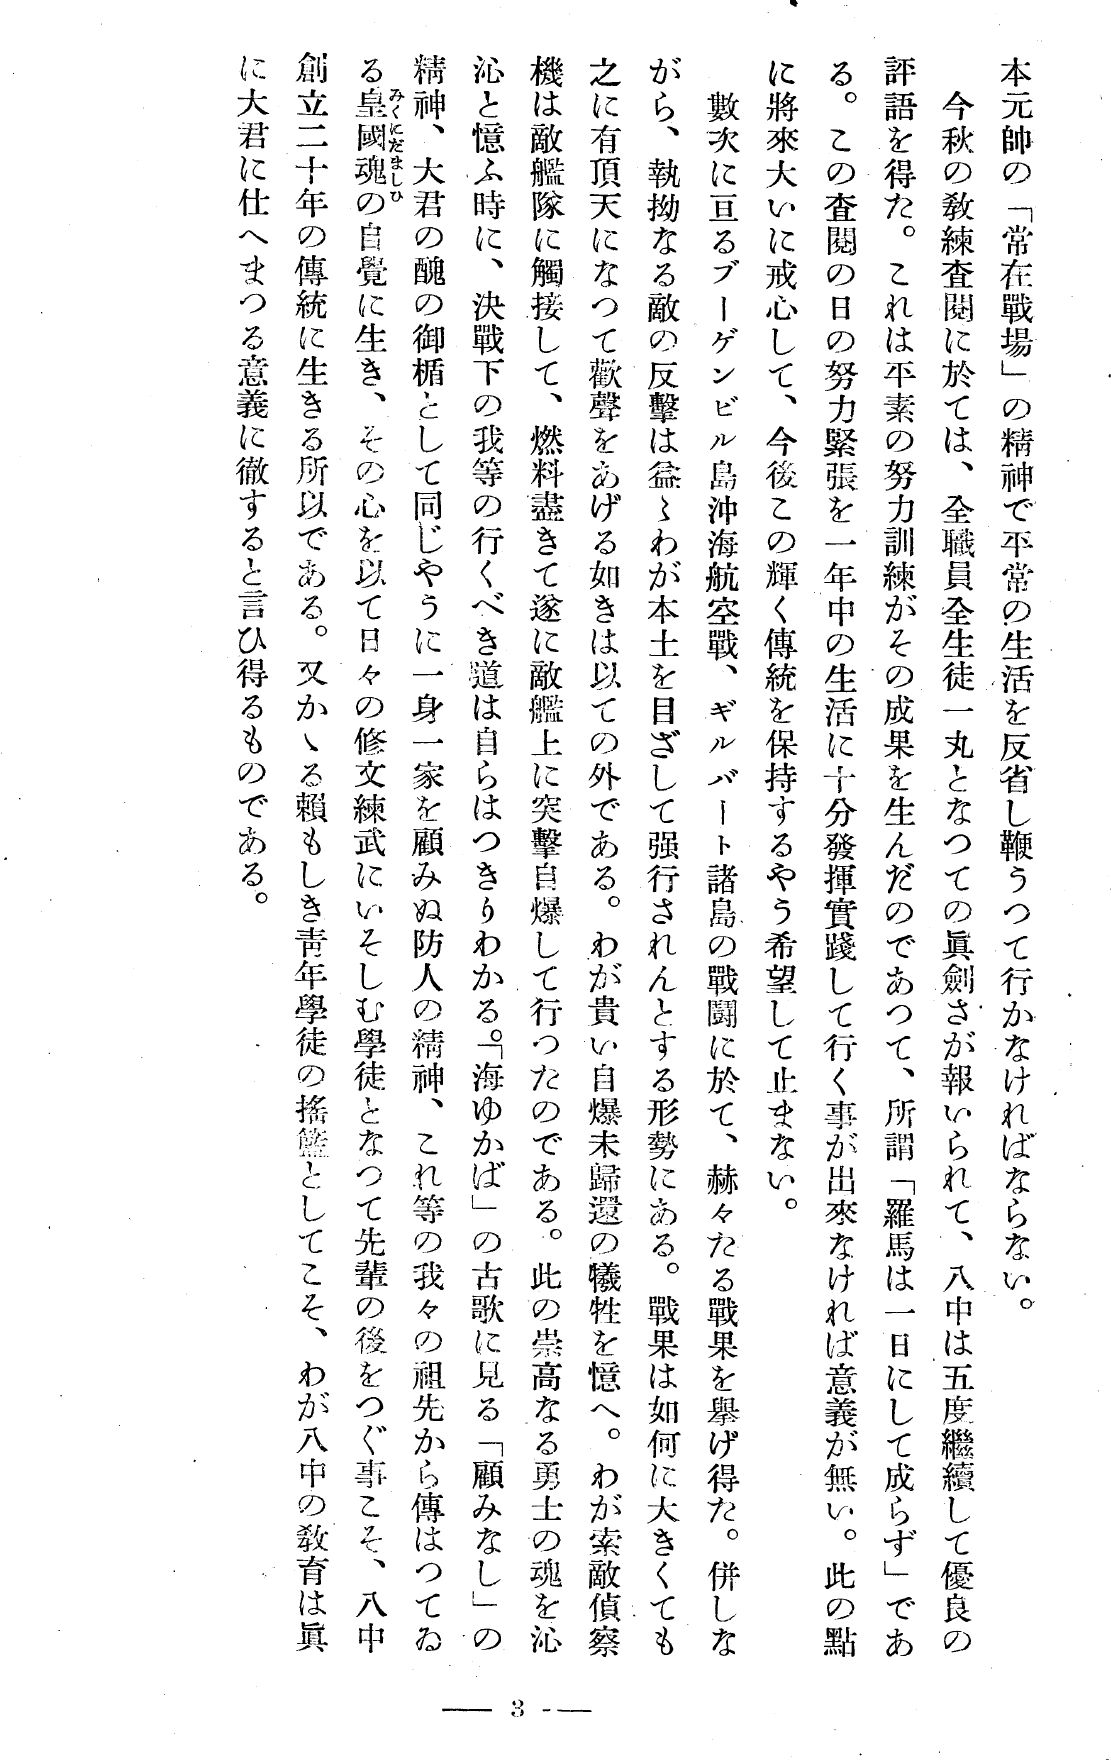 本元帥の「常在戰場」の精神で平常の生活を反省し鞭うつて行かなければならない。
今秋の敎練査閲に於ては、全職員全生徒一丸となつての眞劍さが報いられて、八中は五度繼續して優良の
評語を得た。これは平素の努力訓練がその成果を生んだのであつて、所謂「羅馬は一日にして成らず」であ
る。この査閲の日の努力緊張を一年中の生活に十分發揮實踐して行く事が出來なければ意義が無い。此の點
に將來大いに戒心して、今後この輝く傳統を保持するやう希望して止まない。
數次に亘るブーゲンビル島沖海航空戰、ギルバート諸島の戰鬪に於て、赫々たる戰果を擧げ得た。併しな
がら、執拗なる敵の反擊は益〻わが本土を目ざして强行されんとする形勢にある。戰果は如何に大きくても
之に有頂天になつて歡聲をあげる如きは以ての外である。わが貴い自爆未歸還の犧牲を憶へ。わが索敵偵察
機は敵艦隊に觸接して、燃料盡きて遂に敵艦上に突擊自爆して行つたのである。此の崇高なる勇士の魂を沁
沁と憶ふ時に、決戰下の我等の行くべき道は自らはつきりわかる。「海ゆかば」の古歌に見る「顧みなし」の
精神、大君の醜の御楯として同じやうに一身一家を顧みぬ防人の精神、これ等の我々の祖先から傳はつてゐ
る皇國魂の自覺に生き、その心を以て日々の修文練武にいそしむ學徒となつて先輩の後をつぐ事こそ、八中
みくにだましひ
創立二十年の傳統に生きる所以である。又かゝる賴もしき靑年學徒の搖籃としてこそ、わが八中の敎育は眞
に大君に仕へまつる意義に徹すると言ひ得るものである。
— 3 —